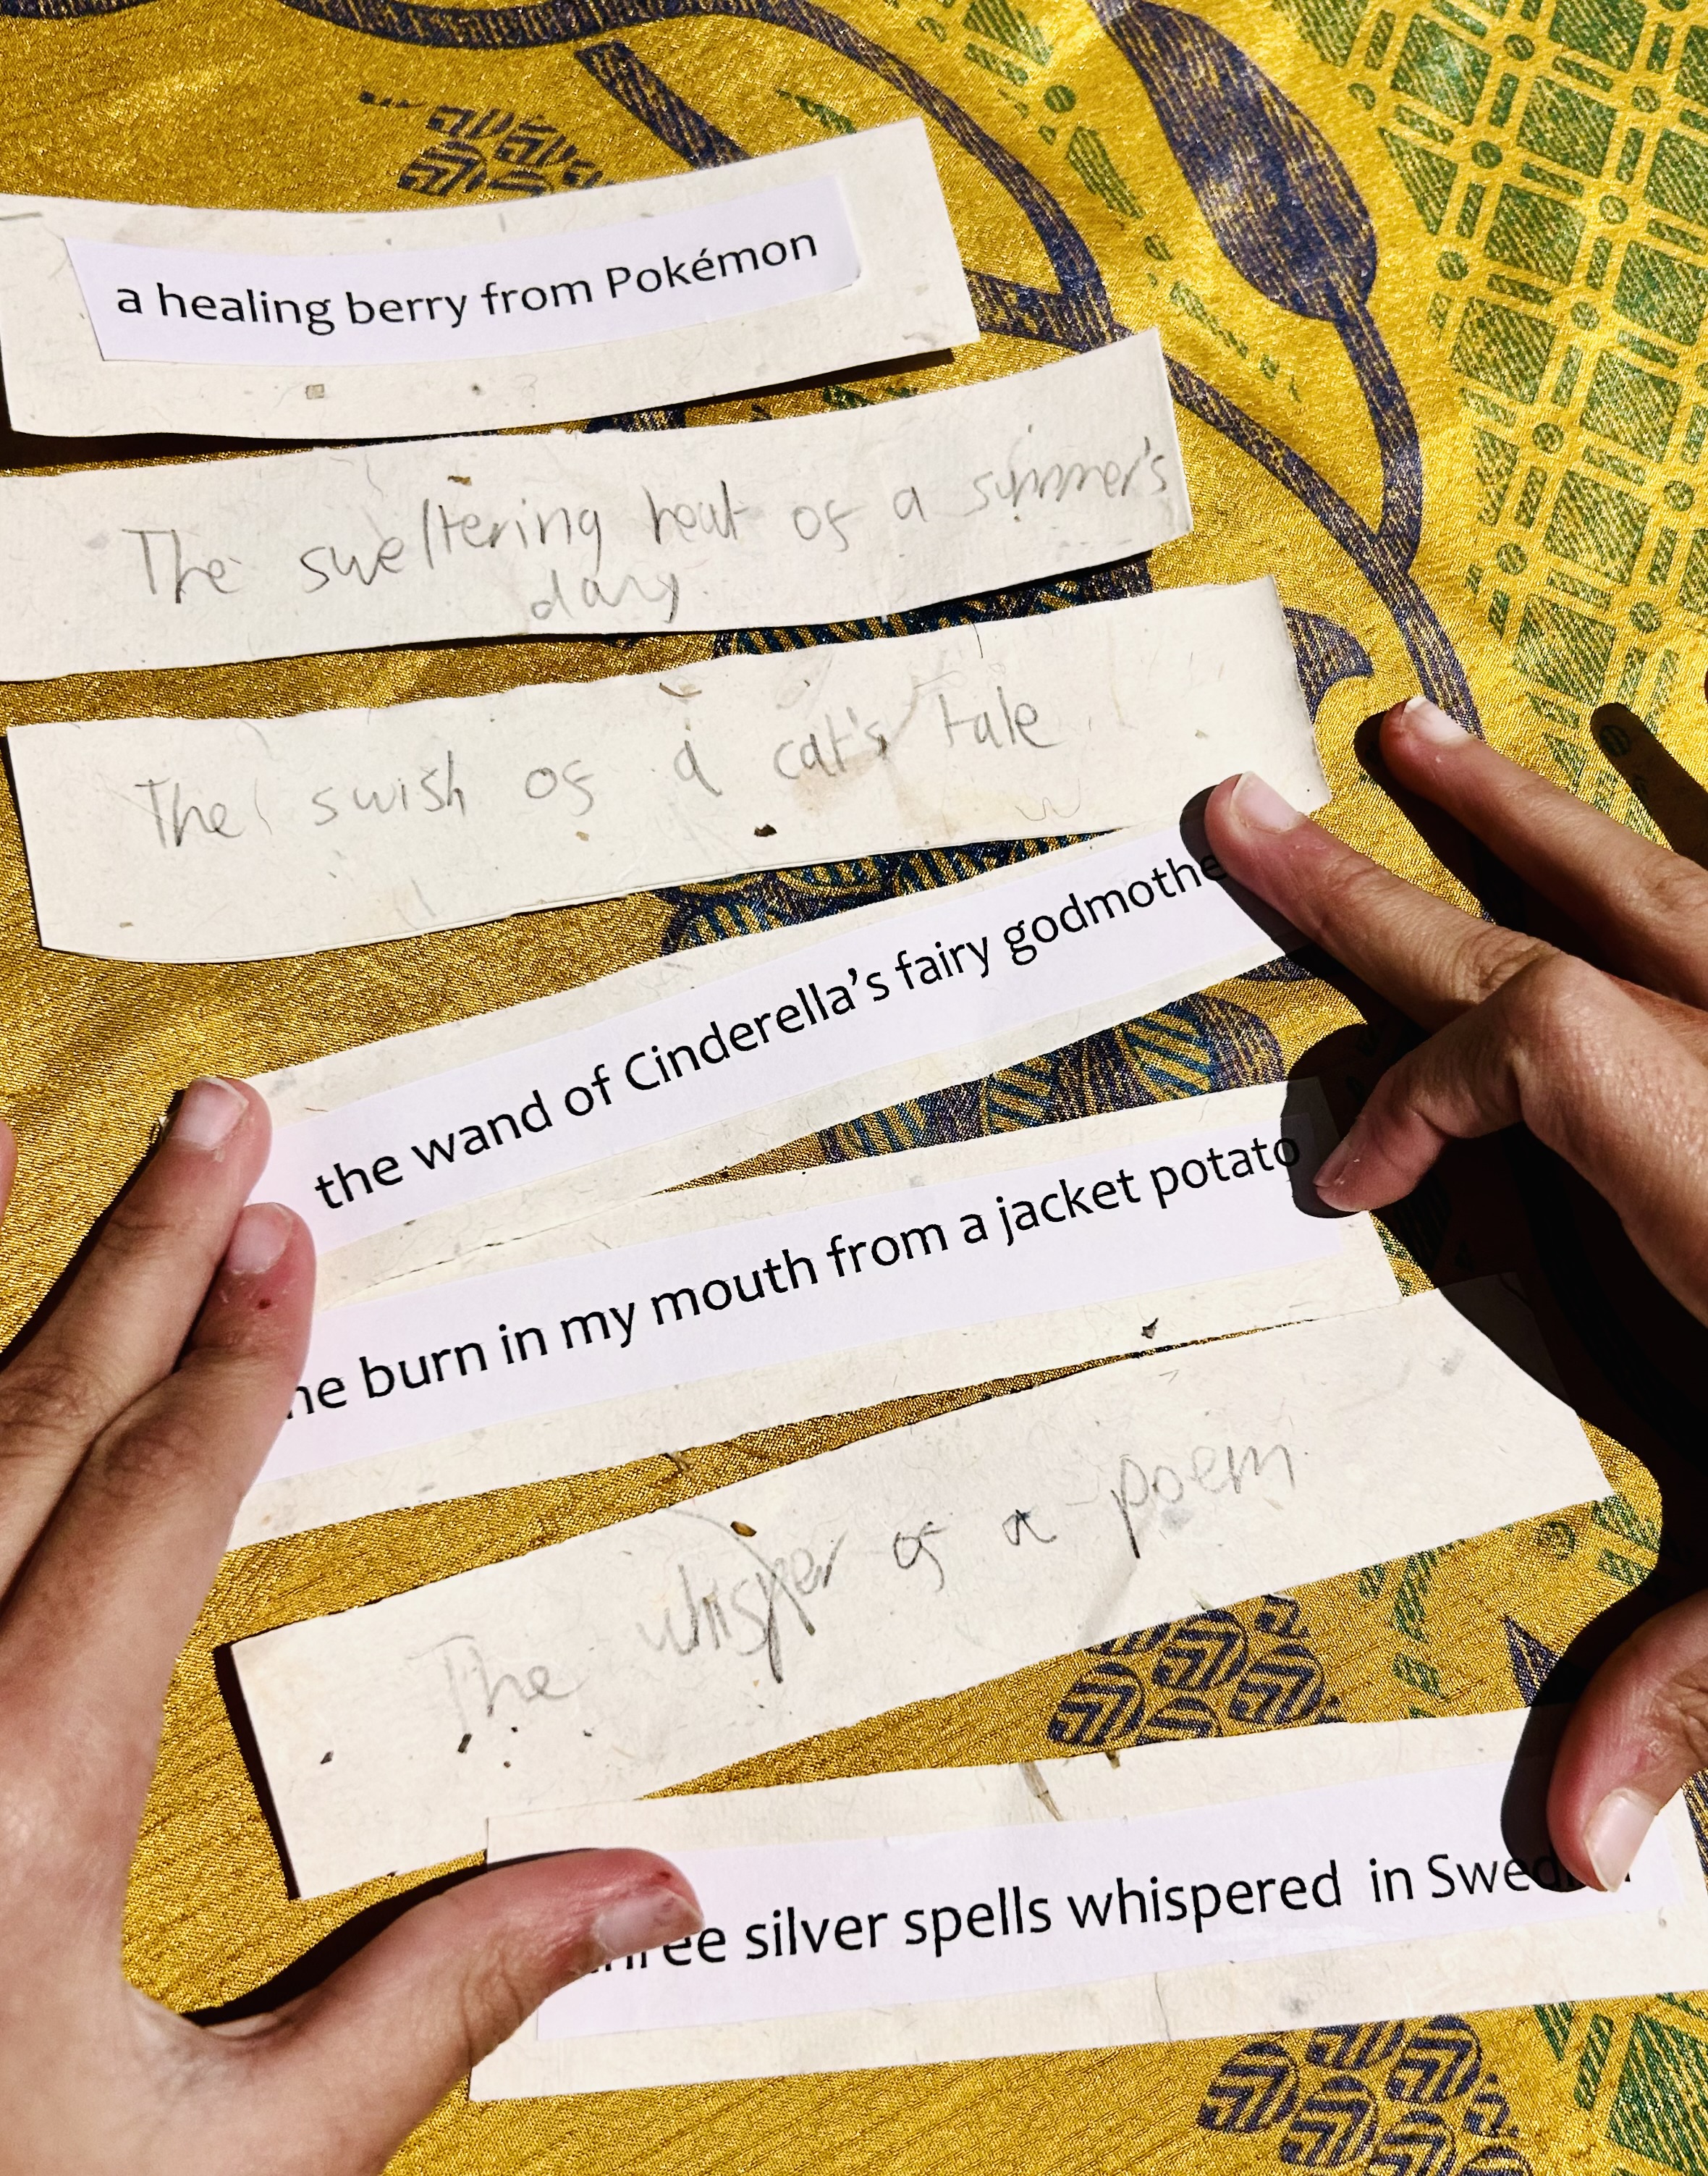 a healing berry from Pokémon
The sweltering heat of a summer's
day.
The swish of a cat's tale
the wand of Cinderella's fairy godmothe
he burn in my mouth from a jacket potato
The whisper of a poem
three silver spells whispered in Swed